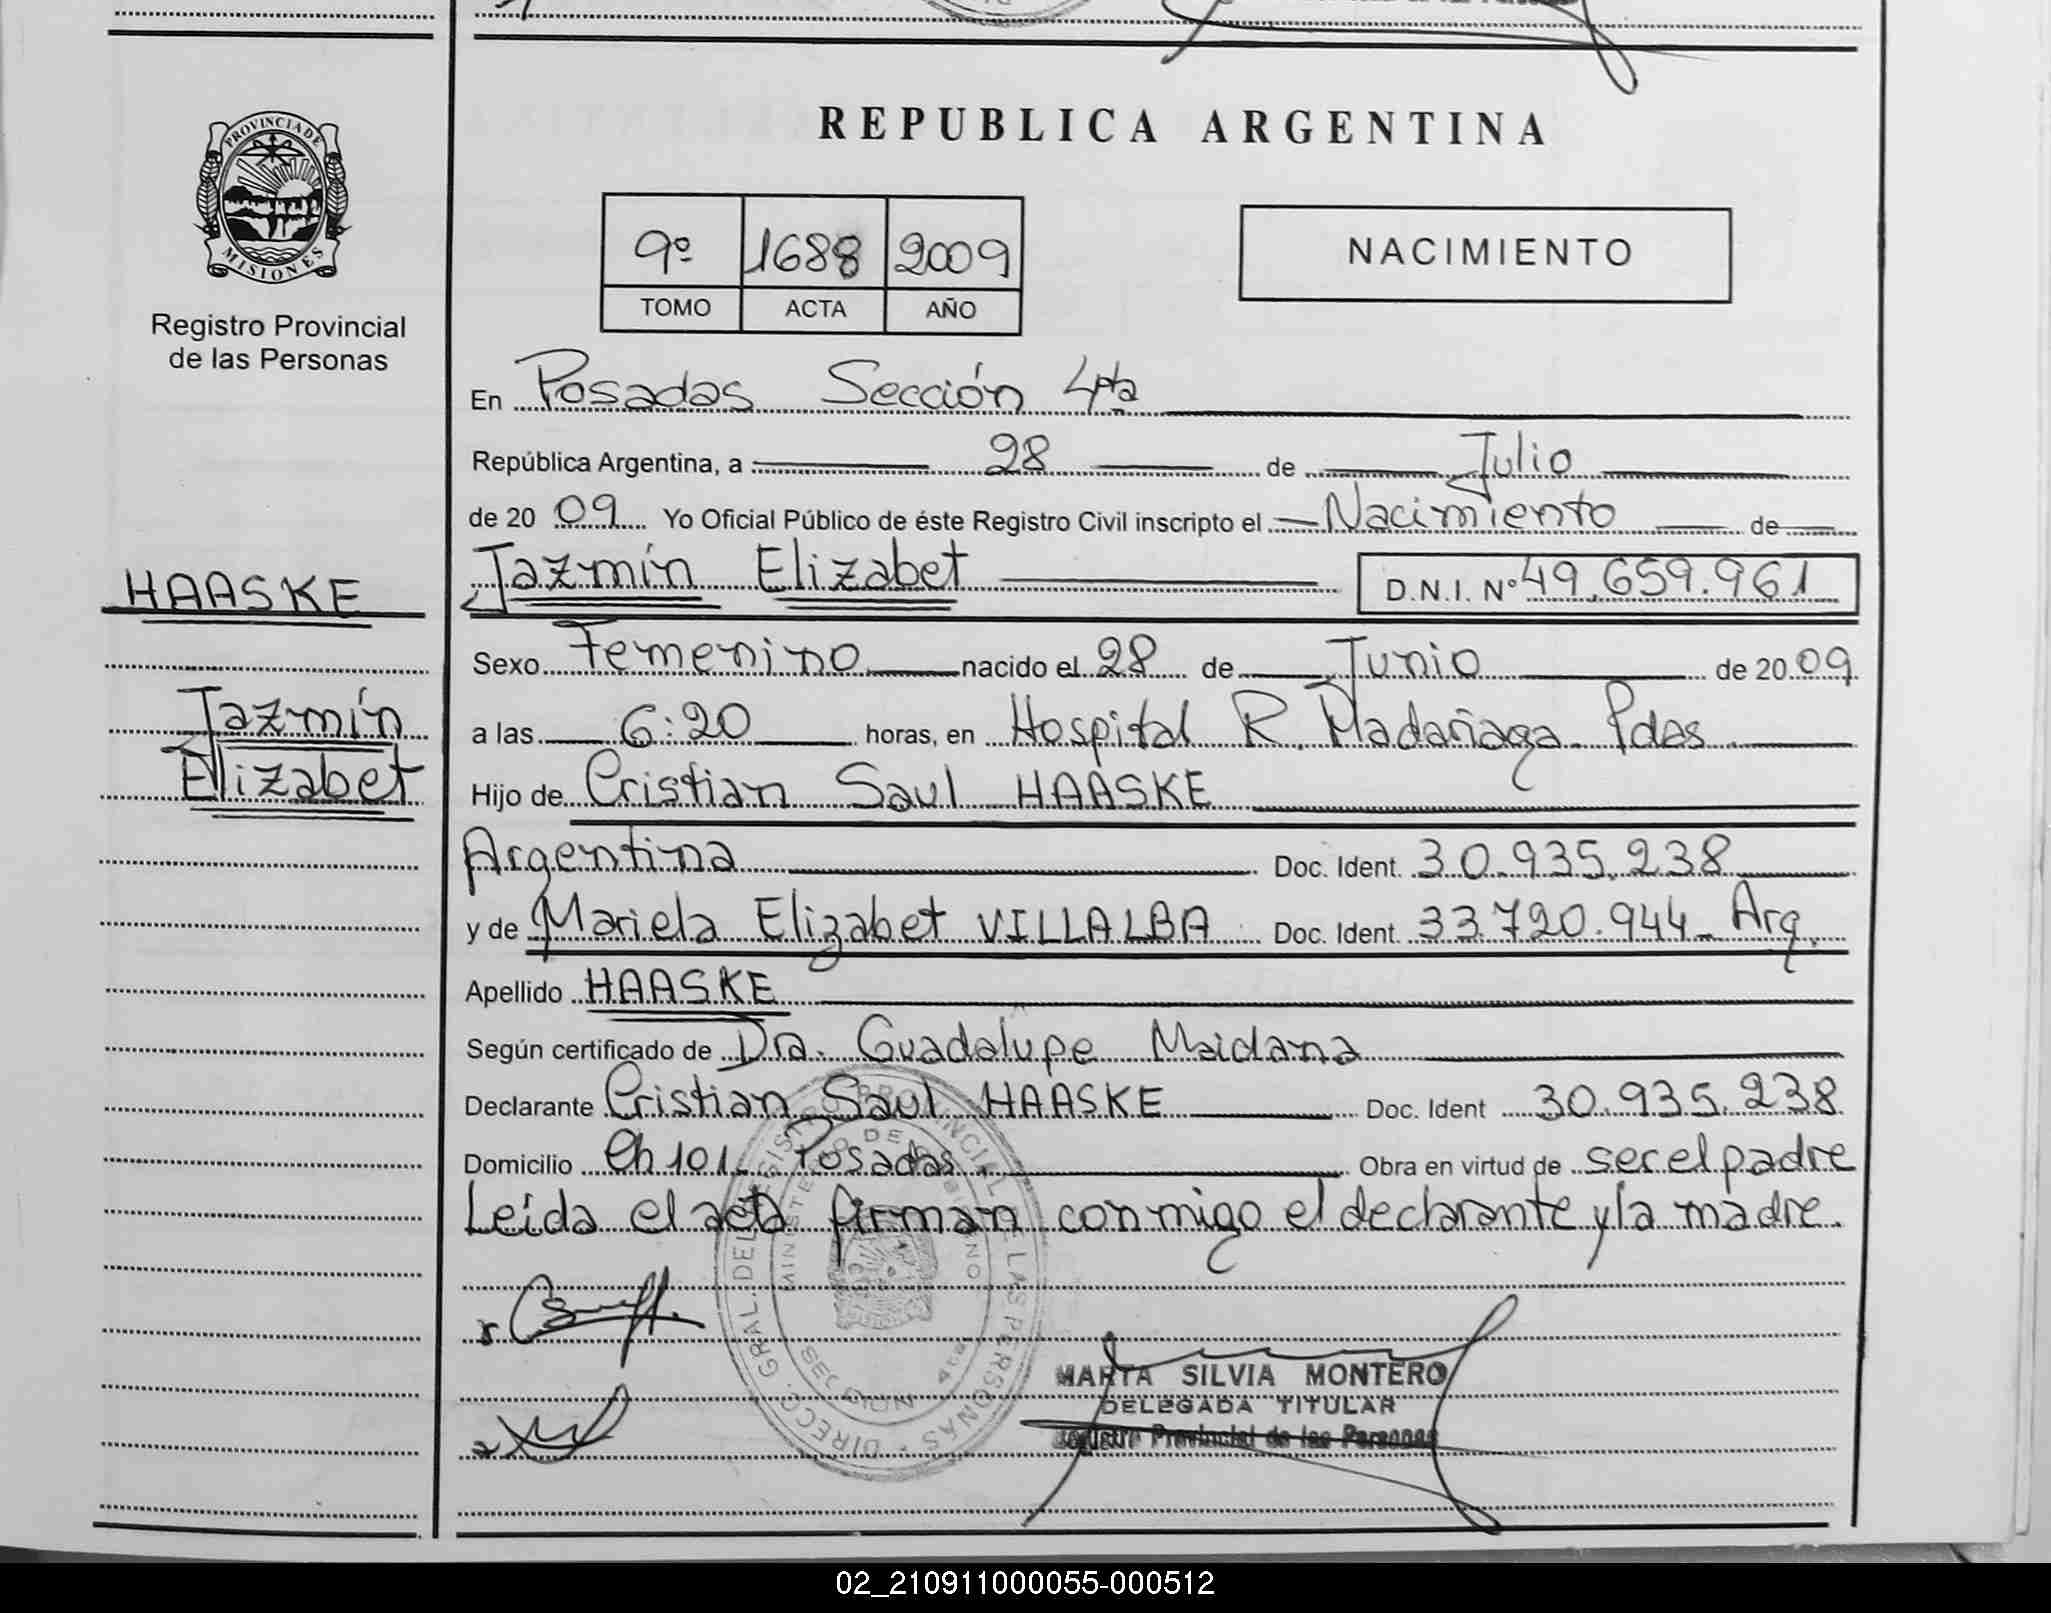 PROVINCIA DE
MISIONES
Registro Provincial
de las Personas
HAASKE
Jazmín
Elizabet
REPUBLICA ARGENTINA
9º 1688 2009
TOMO ACTA AÑO
NACIMIENTO
En Posadas Sección 4ta
República Argentina, a 28 de Julio
de 20 09 Yo Oficial Público de éste Registro Civil inscripto el Nacimiento de
Jazmín Elizabet D.N.I. Nº 49.659.961
Sexo Femenino nacido el 28 de Junio de 20 09
a las 6:20 horas, en Hospital R. Madariaga Pdas
Hijo de Cristian Saul HAASKE
Argentina Doc. Ident. 30.935.238
y de Mariela Elizabet VILLALBA Doc. Ident. 33.720.944 Arg.
Apellido HAASKE
Según certificado de Dra. Guadalupe Maidana
Declarante Cristian Saul HAASKE Doc. Ident 30.935.238
Domicilio Ch 101 Posadas Obra en virtud de ser el padre
Leída el acta firman conmigo el declarante y la madre.
DIRECC. GRAL. DEL REGISTRO PROVINCIAL DE LAS PERSONAS
MINISTERIO DE GOBIERNO
SECCION 4ta
MARTA SILVIA MONTERO
DELEGADA TITULAR
Registro Provincial de las Personas
02_210911000055-000512